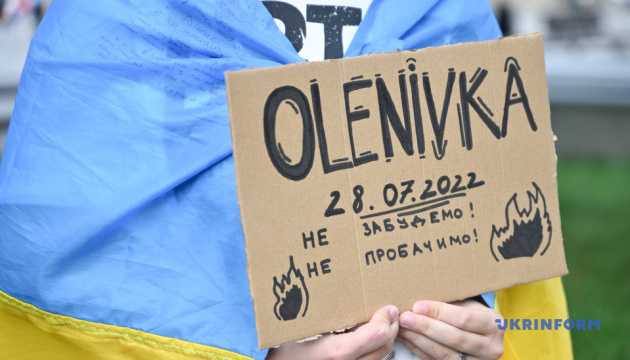 РТ
OLENIVKA
28.07.2022
НЕ ЗАБУДЕМО!
НЕ ПРОБАЧИМО!
UKRINFORM